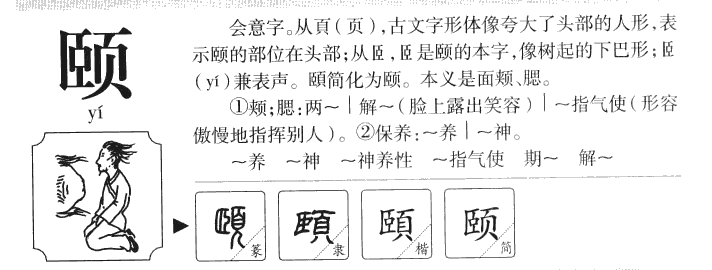 颐
yí
会意字。从頁(页),古文字形体像夸大了头部的人形,表
示颐的部位在头部;从𦣞,𦣞是颐的本字,像树起的下巴形;𦣞
(yí)兼表声。頤简化为颐。本义是面颊、腮。
①颊;腮:两～｜解～(脸上露出笑容)｜～指气使(形容
傲慢地指挥别人)。②保养:～养｜～神。
～养 ～神 ～神养性 ～指气使 期～ 解～
頤 篆
頤 隶
頤 楷
颐 简